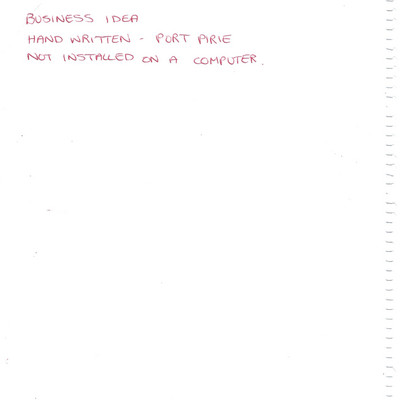 BUSINESS IDEA
HAND WRITTEN - PORT PIRIE
NOT INSTALLED ON A COMPUTER.